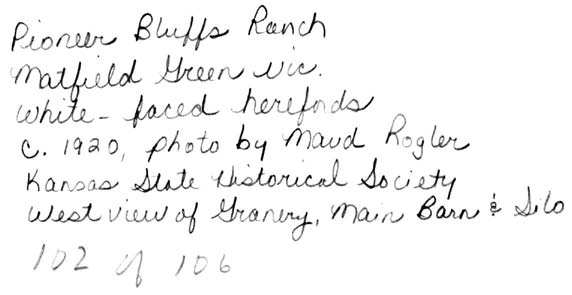 Pioneer Bluffs Ranch
Matfield Green vic.
White-faced herefords
c. 1920, photo by Maud Rogler
Kansas State Historical Society
West view of Granery, Main Barn & Silo
102 of 106